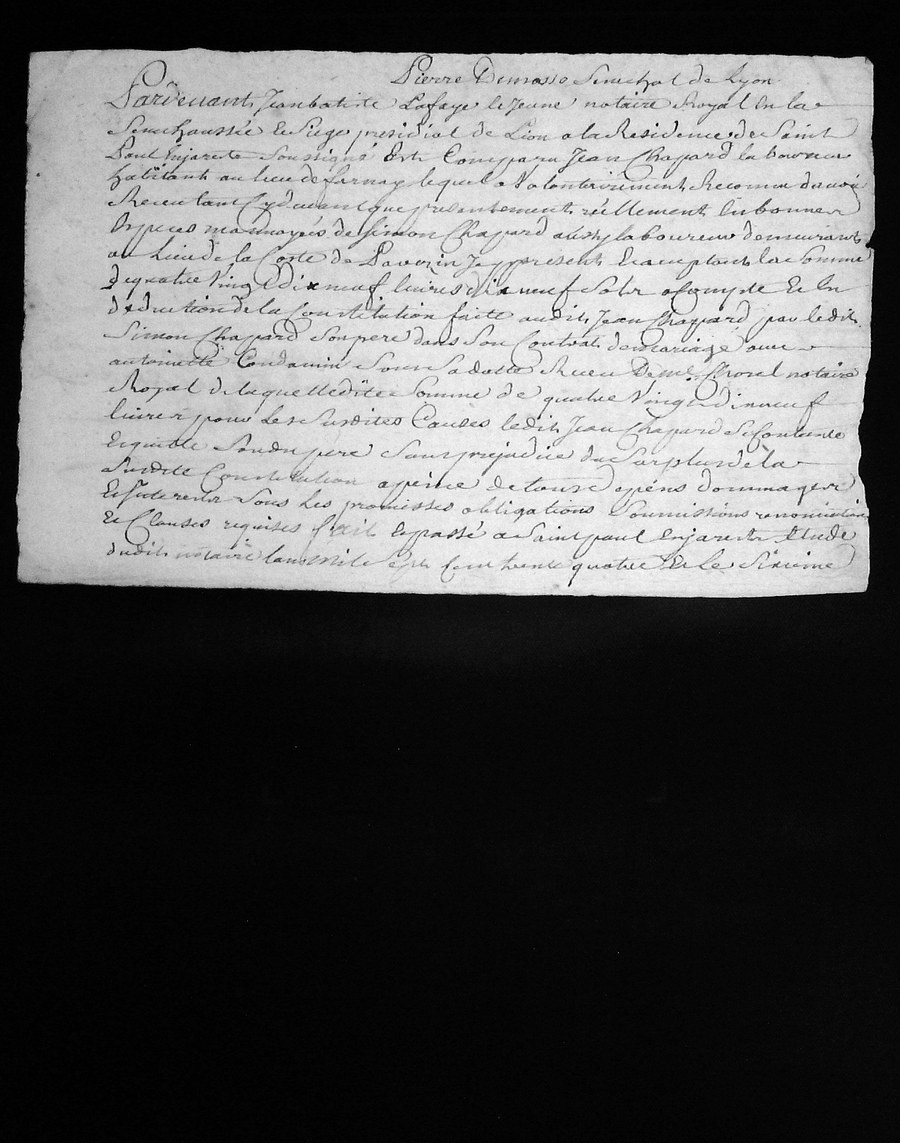 Pierre Demasso Senechal de Lyon
Pardevant Jeanbatiste Lafaye le Jeune notaire Royal En la
Senechaussée & Siege presidial de Lion a la Residence de Saint
Paul Enjarets Soussigné Est Comparu Jean Chapard laboureur
habitant au lieu de farnay lequel a Volontairement Reconnu davoir
Receu tant Cydevant que presentement réellement En bonnes
Especes monnoyés de Simon Chapard aussy laboureur demeurant
au Lieu de la Coste de Paverin Jcy present & acceptant la Somme
de quatre Vingt dix neuf livres dix neuf Sols a Compte & En
déduction de la Constitution faite audit Jean Chapard par ledit
Simon Chapard Son pere dans Son Contrat de mariage avec
antoinette Condamin Receu De me. Chorel notaire
Royal de laquelle dite Somme de quatre Vingt dix neuf
livres pour Les Susdites Causes ledit Jean Chapard Se Contante
Et quitte Sondit pere Sans prejudice du Surplus de la
Susdite Constitution a peine de tous depens dommages
Et Jnterets Sous Les promisses obligations Soumissions renonciations
& Clauses requises fait & passé a Saint paul Enjarets Etude
dudit notaire lan mil Sept Cent trente quatre & le Sixieme